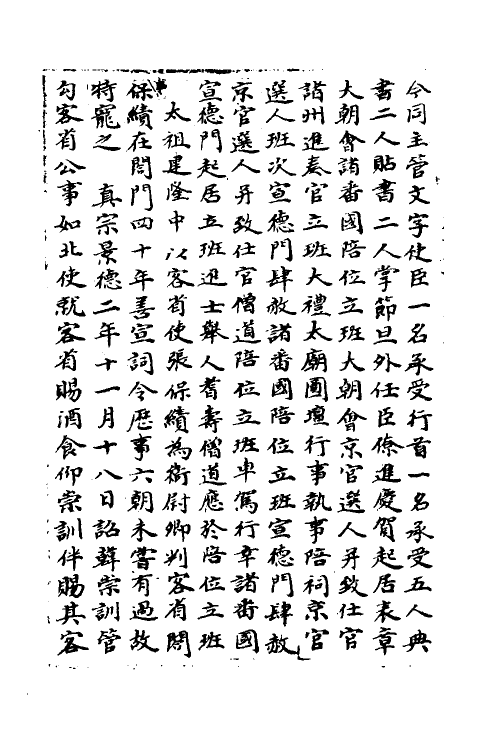 令同主管文字使臣一名承受行首一名承受五人典
書二人貼書二人掌節旦外任臣僚進慶賀起居表章
大朝會諸番國陪位立班大朝會京官選人并致仕官
諸州進奏官立班大禮太廟圜壇行事執事陪祠京官
選人班次宣德門肆赦諸番國陪位立班宣德門肆赦
京官選人并致仕官僧道陪位立班車駕行幸諸番國
宣德門起居立班進士舉人耆壽僧道應於陪位立班
太祖建隆中以客省使張保續為衛尉卿判客省閤
事保續在閤門四十年善宣詞令歷事六朝未嘗有過故
特寵之 真宗景德二年十一月十八日詔韓崇訓管
勾客省公事如北使就客省賜酒食仰崇訓伴賜其客